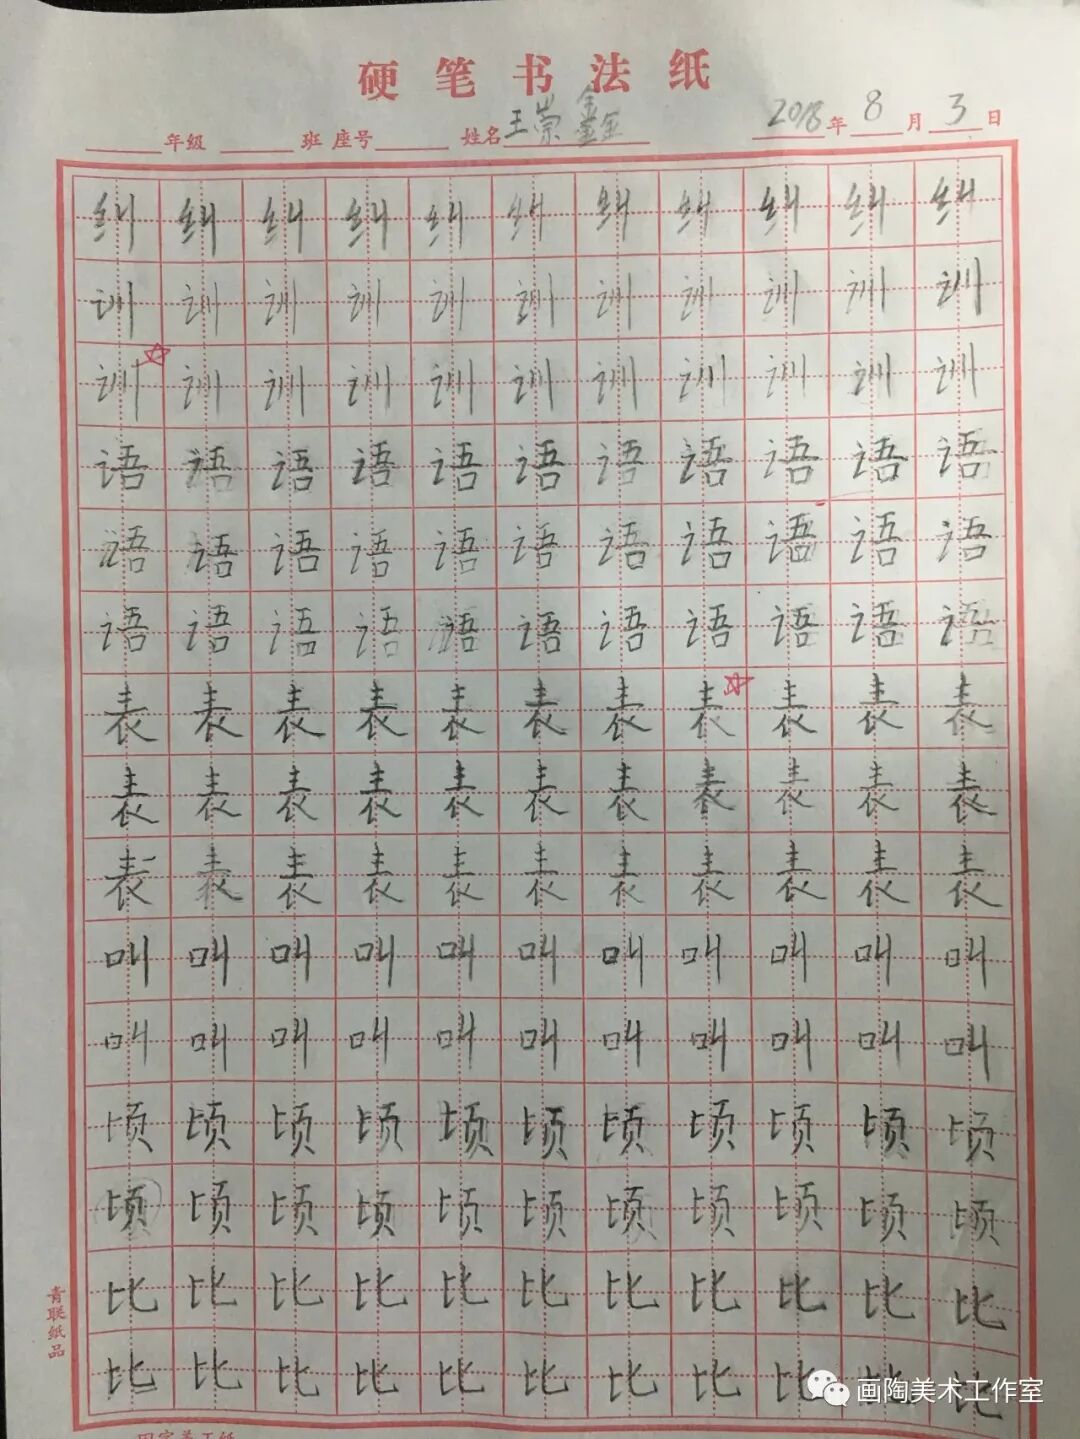 硬笔书法纸
年级 班 座号 姓名 王崇鑫 2018年8月3日
纠纠纠纠纠纠纠纠纠纠纠
训训训训训训训训训训训
训训训训训训训训训训训
语语语语语语语语语语语
语语语语语语语语语语语
语语语语语语语语语语语
表表表表表表表表表表表
表表表表表表表表表表表
表表表表表表表表表表表
叫叫叫叫叫叫叫叫叫叫叫
叫叫叫叫叫叫叫叫叫叫叫
顷顷顷顷顷顷顷顷顷顷顷
顷顷顷顷顷顷顷顷顷顷顷
比比比比比比比比比比比
比比比比比比比比比比比
青联纸品
画陶美术工作室